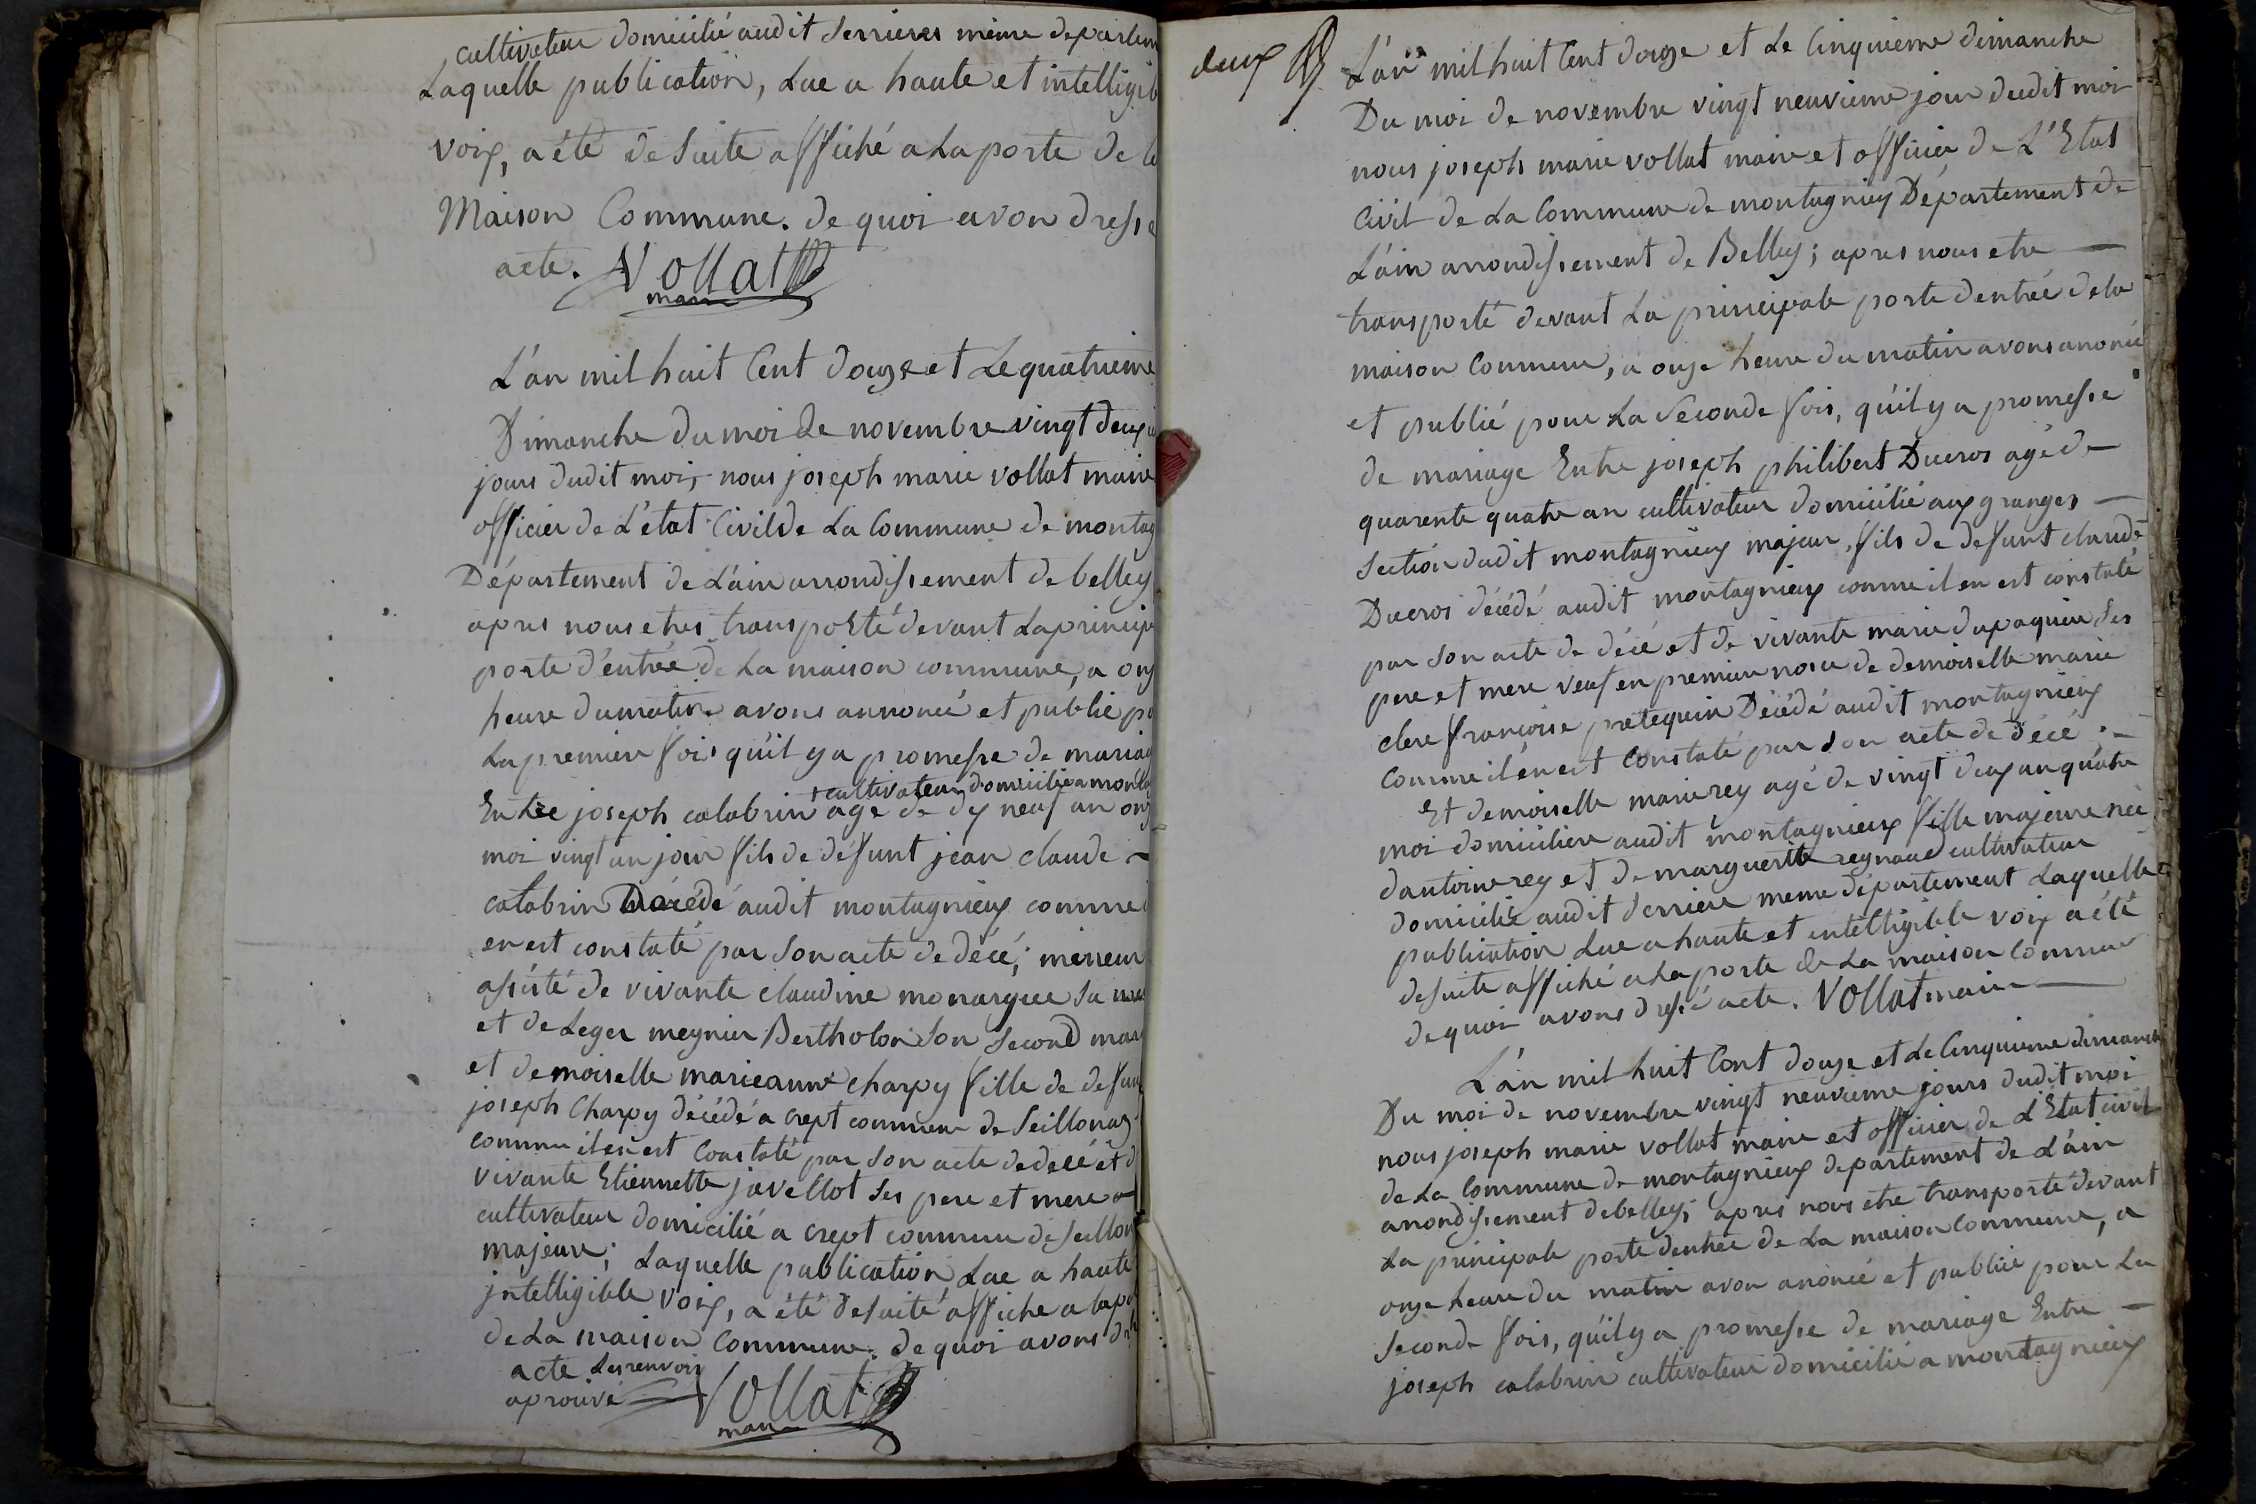 cultivateur domicilié audit serrieres même departem
Laquelle publication, Lue a haute et intelligib
voix, a été de suite affiché a La porte de la
Maison Commune. de quoi avon dressé
acte. Vollat
maire
L'an mil huit Cent douze et Le quatrieme
Dimanche du moi de novembre vingt deuxie
jours dudit moi, nous joseph marie vollat maire
officier de L'état Civil de La Commune de montag
Département de L'ain arrondissement de belley
apres nous etres transporté devant La princip
porte d'entrée de La maison commune, a onz
heure du matin avons annoncé et publié po
La premiere fois qu'il y a promesse de mariag
+ cultivateur domicilié a montag
Entre joseph calabrin + agé de dix neuf an onz
moi vingt un jour fils de défunt jean claude
calabrin décédé audit montagnieux comme i
en est constaté par son acte de décé; mineur
assisté de vivante claudine monarque sa mer
et de Leger meynier Bertholon son second mari
et demoiselle marieanne charpy fille de defun
joseph Charpy décédé a crept commune de Seillonaz
comme il en est Constaté par son acte de décé et d
vivante Etiennette javellot ses pere et mere
cultivateur domicilié a crept commune de seillon
majeure; Laquelle publication Lue a haute
intelligible voix, a été de suite affiché a la po
de La maison Commune. de quoi avons dr
acte Les renvois
aprouvé Vollat
maire
deux
L'an mil huit Cent douze et Le Cinquieme dimanche
Du moi de novembre vingt neuvieme jour dudit moi
nous joseph marie vollat maire et officier de L'Etat
Civil de La Commune de montagnieu Département de
L'ain arrondissement de Belley; apres nous etre
transporté devant La principale porte d'entrée de la
maison Commune, a onze heure du matin avons anoncé
et publié pour La Seconde fois, qu'il y a promesse
de mariage Entre joseph philibert Ducros agé de
quarente quatre an cultivateur domicilié aux granges
section dudit montagnieux majeur, fils de defunt claude
Ducros décédé audit montagnieux comme il en est constaté
par son acte de décé et de vivante marie dupaquier ses
pere et mere veuf en premiere noce de demoiselle marie
clere françoise pretequin Décédé audit montagnieux
Comme il en est Constaté par son acte de décé.
Et demoiselle marie rey agé de vingt deux an quatre
moi domiciliere audit montagnieux fille majeure née
d'antoine rey et de marguerite reynaud cultivateur
domicilié audit serriere meme département Laquelle
publication Lue a haute et intelligible voix a été
de suite affiché a La porte de La maison Commune
de quoi avons dressé acte. Vollat maire
L'an mil huit Cent douze et Le Cinquieme dimanche
Du moi de novembre vingt neuvieme jours dudit moi
nous joseph marie vollat maire et officier de L'Etat civil
de La Commune de montagnieux departement de L'ain
arrondissement de belley; apres nous etre transporté devant
La principale porte d'entrée de La maison Commune, a
onze heure du matin avon anoncé et publié pour La
seconde fois, qu'il y a promesse de mariage Entre
joseph calabrin cultivateur domicilié a montagnieux